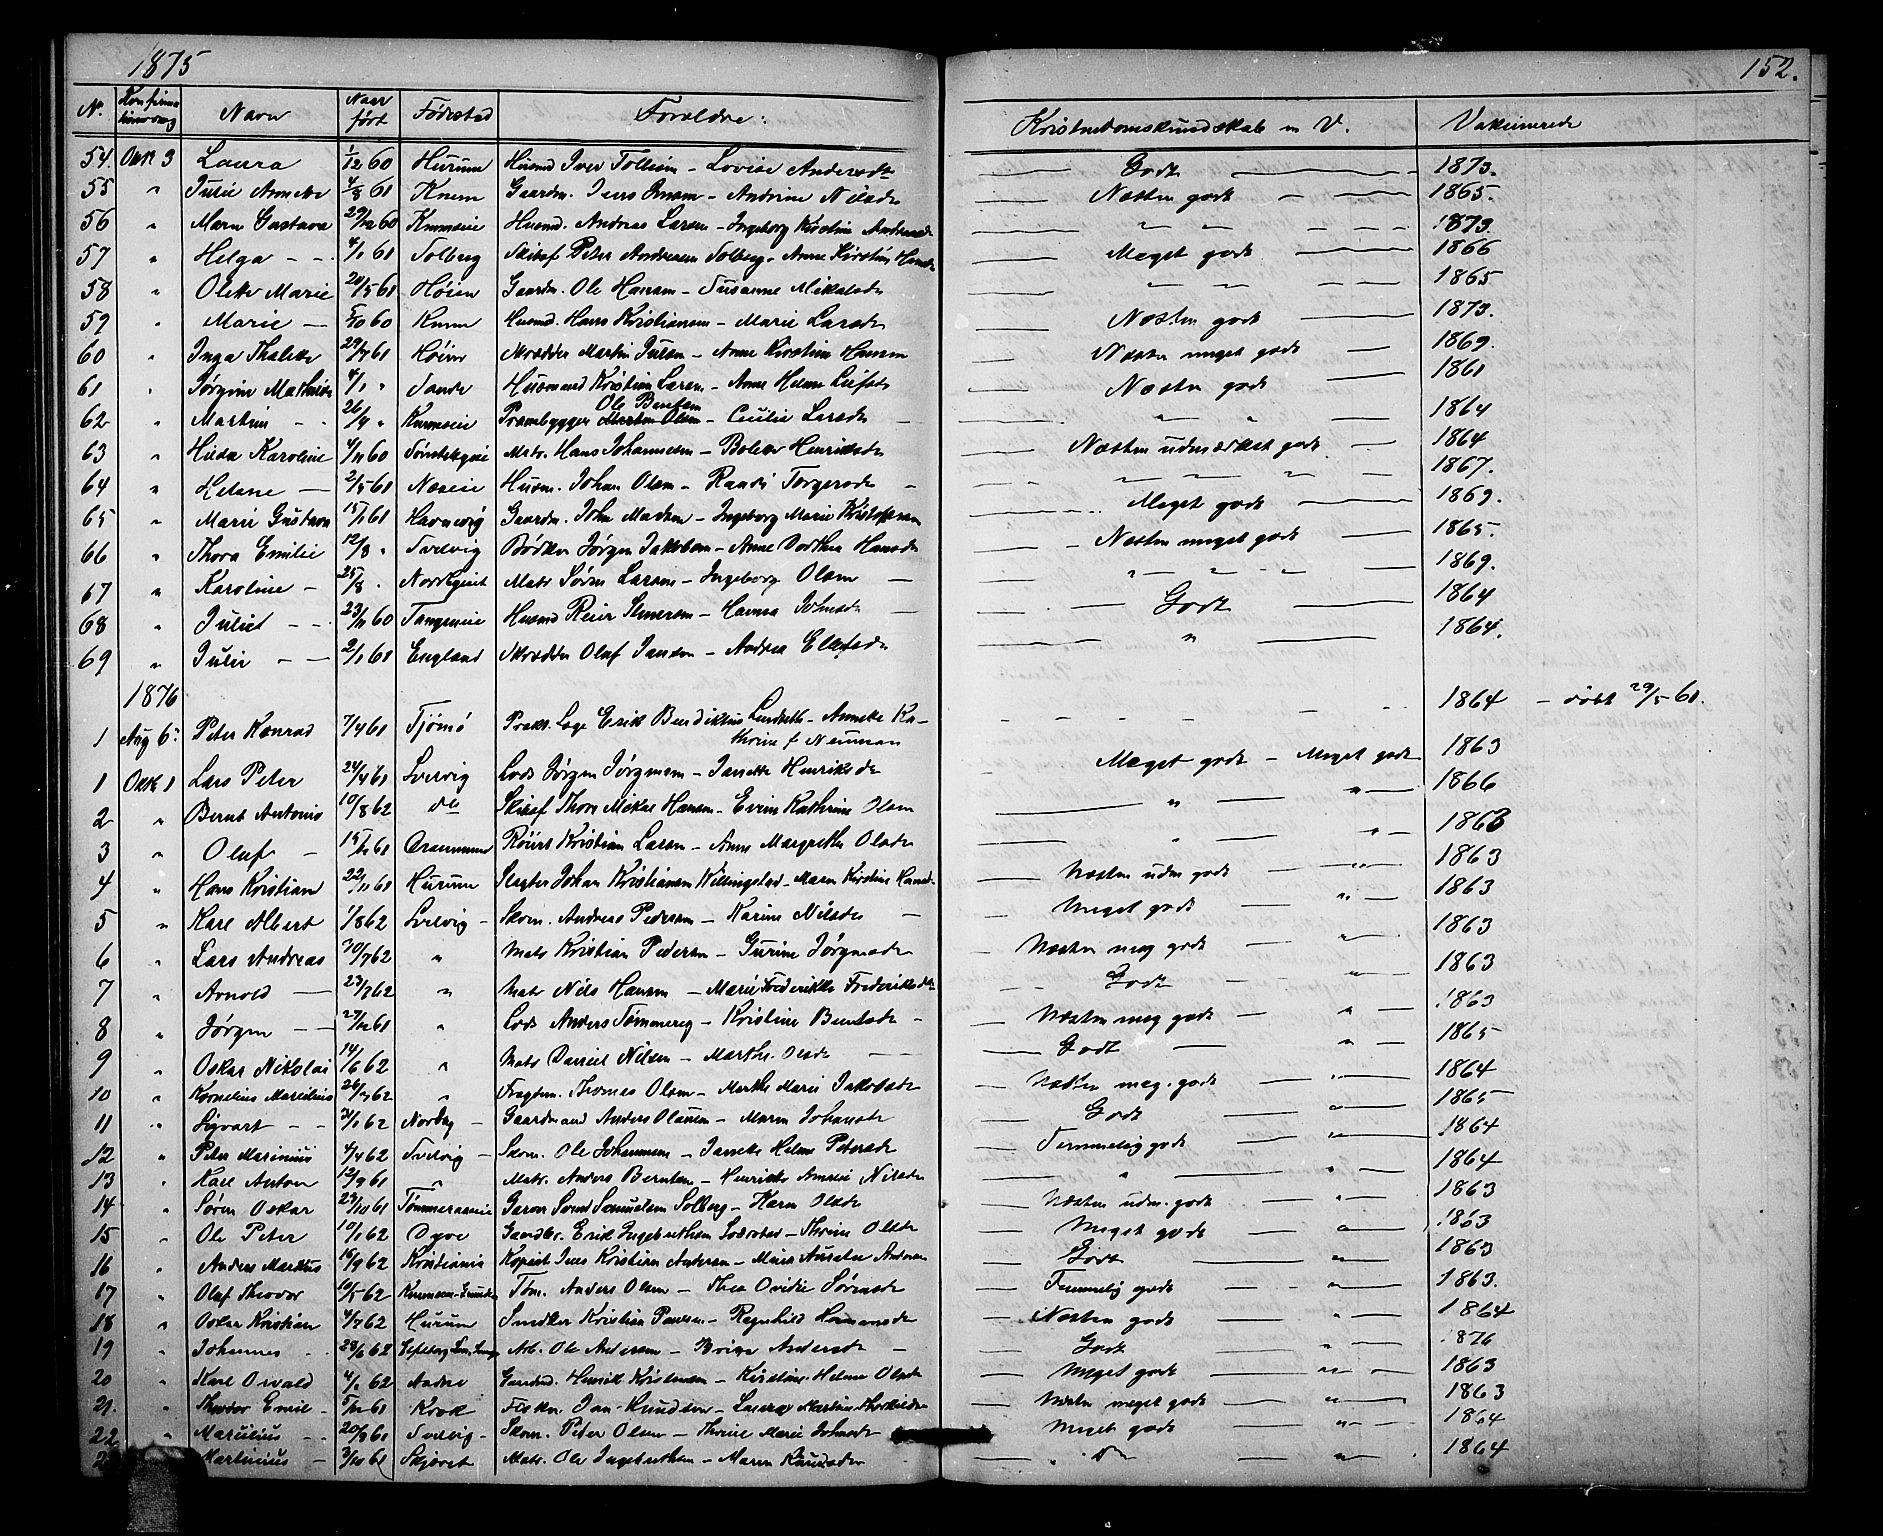 1875
152.
No. Konfirmationsdag Navn Naar født Fødested Forældre: Kristendomskundskab m V. Vakcinerede
54. Okt 3 Laura 1/12 60 Hurum Husmd Iver Tollefsen – Lovise Andersdt Godt 1873.
55 " Julie Annette 4/8 61 Knem Gaardm. Jens – Andrine Nilsdr Næsten godt 1865.
56 " Maren Gustava 29/12 60 Husmd. Andreas Larsen – Ingeborg Kirstine Andersdr " " " 1873.
57 " Helga 4/1 61 Solberg Skibsf Peter Andresen Solberg – Anne Kirstine Hansdr Meget godt 1866
58 " Oleke Marie 20/5 61 Høien Gaardm. Ole Hansen – Susanne Mikalsdr " " 1865
59 " Marie 5/10 60 Husmd. Hans Kristiansen – Marie Larsdr Næsten godt 1873.
60 " Inga Thalette 29/7 61 Høien Skrædder Martin Julsen – Anne Kirstine Hansen Næsten meget godt 1869.
61 " Jørgine Mathilde 4/1 " Sande Husmand Kristian Larsen – Anne Helene Næsten godt 1861
62 " Martine 26/4 " Prambygger Martin Olsen Ole Bentsen – Cecilie Larsdr " " 1864
63 " Hilda Karoline 4/11 60 Matr. Hans Johannesen – Bolette Henriksdr Næsten udmærket godt 1864
64 " Helene 2/5 61 Næseie Husm. Johan Olsen – Randi Torgersdr " " " " 1867.
65 " Marie Gustava 15/1 61 Havnevig Gaardm. John Madsen – Ingeborg Marie Kristoffersen Meget godt 1869.
66 " Thora Emilie 12/8 " Svelvig Bødker Jørgen Jakobsen – Anne Dorthea Hansdr Næsten meget godt 1865.
67 " Karoline 25/8 . Matr Søren Larsen – Ingeborg Olsen " " " " 1869.
68 " Juliet 23/11 60 Tangeneie Husmd Reier Simensen – Hanna Johnsdr Godt 1864
69 " Julie 2/1 61 England Skrædder Olaf Jansen – Andrea Ellefsdr " 1864.
1876
1 Aug 6. Peter Konrad 7/4 61 Tjømø Prakt. Læge Erik Bendiktus Lundseth – Annette Ka- 1864 – døbt 29/5 61.
thrine f Neuman
1 Okt 1 Lars Peter 24/4 61 Svelvig Lods Jørgen Jørgensen – Janette Henriksdr Meget godt – Meget godt 1863
2 " Bernt Antonius 10/8 62 do Skibsf Thorv Mikal Hansen – Evine Kathrine Olsen " " 1866
3 " Oluf 15/12 61 Drammen Kristian Larsen – Anne Margrethe Olsdr " " 1868
4 " Hans Kristian 22/11 61 Hurum Slagter Johan Kristiansen Killingstad – Maren Kirstine Hansdr Næsten udm godt " 1863
5 " Karl Albert 1/8 62 Svelvig Skom. Andreas Pedersen – Karine Nilsdr Meget godt " 1863
6 " Lars Andreas 30/7 62 " Matr Kristian Pedersen – Gurine Jørgensdr Næsten meg godt " 1863
7 " Arnold 23/7 62 " Matr Nils Hansen – Marie Frederikke Frederiksdr Godt " 1863
8 " Jørgen 27/12 61 " Lods Anders Tømmereg – Kristine Bentsdr Næsten meg godt " 1863
9 " Oskar Nikolai 14/6 62 " Matr Daniel Nilsen – Marthe Olsdr Godt " 1865
10 " Kornelius Marcelius 26/7 62 " Fragtm. Thomas Olsen – Marthe Marie Jakobsdr Næsten meg. godt " 1864
11 " Sigvart 31/1 62 Nordag Gaardmand Anders Olausen – Maren Johansdr Godt " 1865
12 " Peter Marinius 4/4 62 Svelvig Skom. Ole Johannesen – Janette Helene Petersdr Temmelig godt " 1864
13 " Karl Anton 12/9 61 " Matr. Anders Berntsen – Henriette Amalie Nilsdr " " 1864
14 " Søren Oskar 29/10 61 Tømmeraaseie Garver Svend Samuelsen Solberg – Karen Olsdr Næsten udm. godt " 1863
15 " Ole Peter 10/1 62 Gaardbr. Erik Ingebrethsen – Thrine Olsdr Meget godt " 1863
16 " Anders Markus 16/9 62 Kristiania Kopist Jens Kristian Andersen – Maria Aurelie Andersen Godt " 1863
17 " Oluf Theodor 10/5 62 Tøm. Anders Olsen – Thea Ovidie Sørensdr Temmelig godt " 1863.
18 " Oskar Kristian 4/7 62 Hurum Snedker Kristian Paulsen – Ragnhild Hermansdr Næsten godt " 1864
19 " Johannes 28/6 62 Arb. Ole Andersen – Brige Andersdr Godt " 1876
20 " Karl Osvald 4/1 62 Gaardmd. Henrik Kristensen – Kirstine Helene Olsdr Meget godt " 1863
21. " Theodor Emil 5/12 61 Krok Fisker Jan Knudsen – Laura Martine Thorkildsen Næsten meget godt " 1863
22 " Marcelius 20/9 61 Svelvig Skom. Peter Olsen – Thrine Marie Johnsdr Meget godt " 1864
23 Martinius 3/10 61 Skjeret Matr. Ole Ingebrethsen – Maren Knudsdr Do " 1864